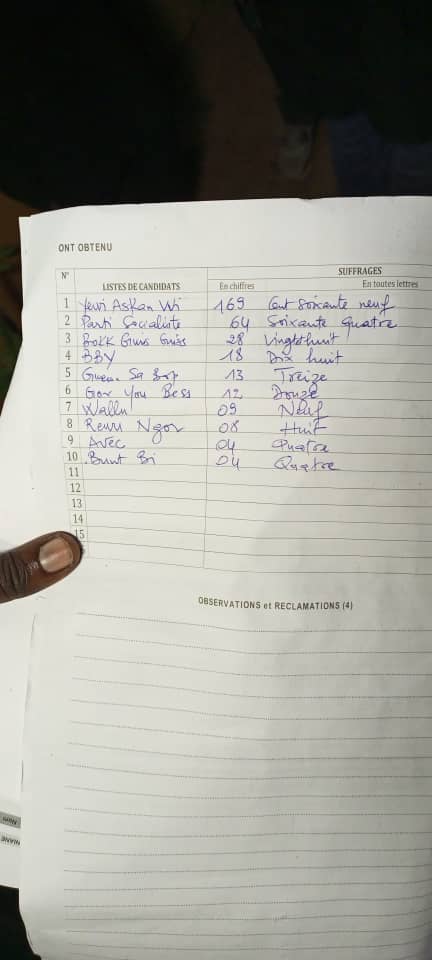 ONT OBTENU
N° LISTES DE CANDIDATS SUFFRAGES
En chiffres En toutes lettres
1 Yewi Askan Wi 169 Cent soixante neuf
2 Parti Socialiste 64 Soixante quatre
3 Bokk Guis Guis 28 Vingt huit
4 BBY 18 Dix huit
5 Guem Sa Bop 13 Treize
6 Gox You Bess 12 Douze
7 Wallu 09 Neuf
8 Rewu Ngor 08 Huit
9 Avec 04 Quatre
10 Bunt Bi 04 Quatre
11
12
13
14
15
OBSERVATIONS et RECLAMATIONS (4)